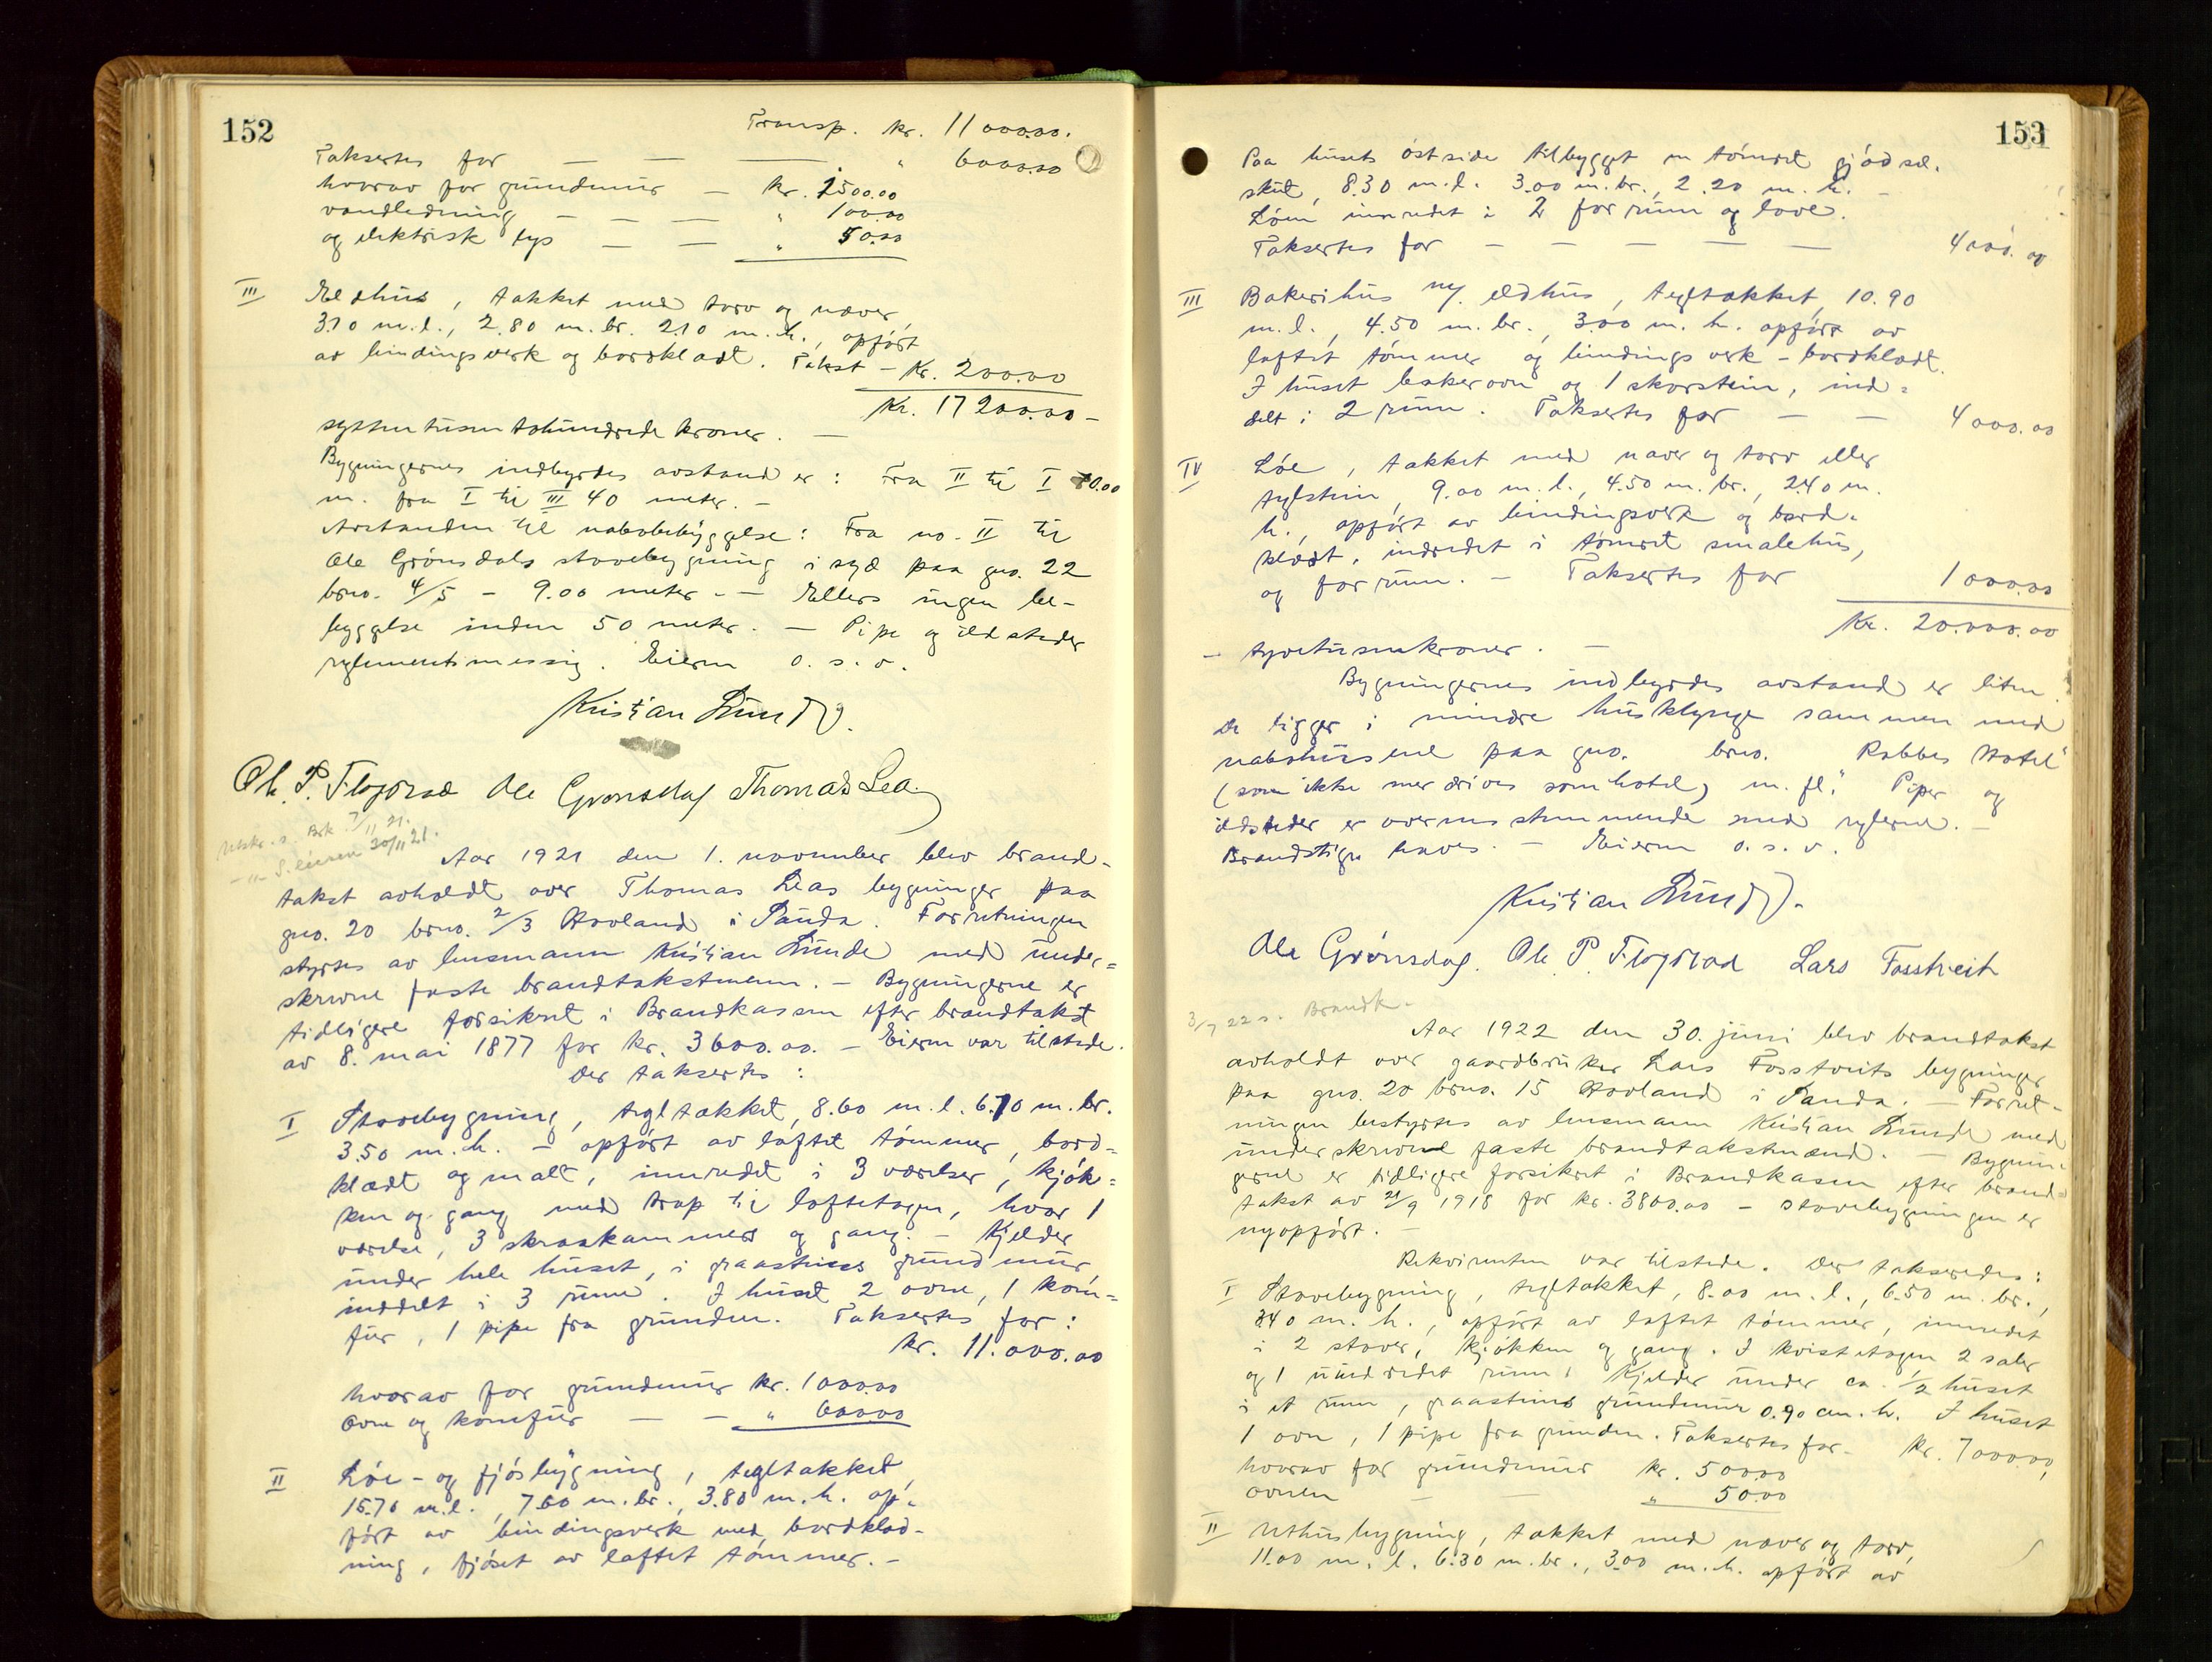 152
Transp. kr. 11000.00.
Taksertes for — — — " 6000.00
hvorav for grundmur — kr. 2500.00
vandledning — — — " 100.00
og elektrisk lys — — " 50.00
III Eldhus, takket med torv og næver,
3.10 m.l., 2.80 m.br. 2.10 m.h., opført
av bindingsverk og bordklædt. Takst — Kr. 200.00
Kr. 17200.00 —
syttentusentohundrede kroner. —
Bygningernes indbyrdes avstand er: Fra II til I 20.00
m. fra I til III 40 meter. —
Avstanden til nabobebyggelse: Fra no. II til
Ole Grønsdals stovebygning i syd paa gno. 22
brno. 4/5 — 9.00 meter. — Ellers ingen be-
byggelse inden 50 meter. — Pipe og ildsteder
reglementsmessig. Eieren o.s.v.
Kristian Lunde.
Ole P. Flogstad Ole Grønsdag Thomas Lea
Utskr. s. Brk. 7/11 21.
—"— S. eieren 30/11 21.
Aar 1921 den 1. november blev brand-
takst avholdt over Thomas Leas bygninger paa
gno. 20 brno. 2/3 Hovland i Sauda. Forretningen
styrtes av lensmann Kristian Lunde med under=
skrevne faste brandtakstmenn. — Bygningerne er
tidligere forsikret i Brandkassen efter brandtakst
av 8. mai 1877 for kr. 3600.00. — Eieren var tilstede.
Der taksertes:
I Stovebygning, tegltækket, 8.60 m.l. 6.70 m.br.
3.50 m.h. — opført av laftet tømmer, bord=
klædt og malt, innredet i 3 værelser, kjøk=
ken og gang med trap til loftetagen, hvor 1
værelse, 3 skraakammers og gang. — Kjelder
under hele huset, i graastens grundmur,
inddelt i 3 rum. I huset 2 ovne, 1 kom=
fur, 1 pipe fra grunden. Taksertes for:
kr. 11.000.00
hvorav for grundmur kr. 1000.00
ovne og komfur — — " 600.00
II Løe- og fjøsbygning, tegltækket,
15.70 m.l., 7.60 m.br., 3.80 m.h. op-
ført av bindingsverk med bordklæd-
ning, fjøset av laftet tømmer. —
153
Paa husets østside tilbygget en tømret gjødsel-
skut, 8.30 m.l. 3.00 m.br., 2.20 m.h. —
Løen innredet i 2 forrum og love.
Taksertes for — — — — — 4000.00
III Bakerihus m/ eldhus, tegltækket, 10.90
m.l., 4.50 m.br., 3.00 m.h. opført av
laftet tømmer og bindingsverk — bordklædt.
I huset bakerovn og 1 skorstein, ind=
delt i 2 rum. Taksertes for — — 4000.00
IV Løe, takket med næver og torv eller
teglstein, 9.00 m.l., 4.50 m.br., 2.40 m.
h., opført av bindingsverk og bord-
klædt, indredet i tømret smalehus,
og forrum. — Taksertes for 1000.00
Kr. 20.000.00
— tyvetusenkroner. —
Bygningernes indbyrdes avstand er liten.
De ligger i mindre husklynge sammen med
nabohusene paa gno. brno. Rabbes Hotel
(som ikke mer drives som hotel) m.fl. Piper og
ildsteder er overensstemmende med reglerne. —
Brandstige haves. — Eieren o.s.v.
Kristian Lunde.
Ole Grønsdag. Ole P. Flogstad Lars Fosstveit
3/7 22 s. Brandk.
Aar 1922 den 30. juni blev brandtakst
avholdt over gaardbruker Lars Fosstveits bygninger
paa gno. 20 brno. 15 Hovland i Sauda. — Forret-
ningen bestyrtes av lensmann Kristian Lunde med
underskrevne faste brandtakstmænd. — Bygnin-
gerne er tidligere forsikret i Brandkassen efter brand=
takst av 21/9 1918 for kr. 3800.00 — stovebygningen er
nyopført. —
Rekvirenten var tilstede. Der takseredes:
I Stovebygning, tegltækket, 8.00 m.l., 6.50 m.br.,
3.40 m.h., opført av laftet tømmer, innredet
i 2 stover, kjøkken og gang. I kvistetagen 2 saler
og 1 uindredet rum. Kjelder under ca. 1/2 huset
i et rum, graastens grundmur 0.90 cm.h. I huset
1 ovn, 1 pipe fra grunden. Taksertes for — kr. 7000.00,
hvorav for grundmur kr. 500.00
ovnen — — " 50.00
II Uthusbygning, takket med næver og torv,
11.00 m.l. 6.30 m.br., 3.00 m.h. opført av